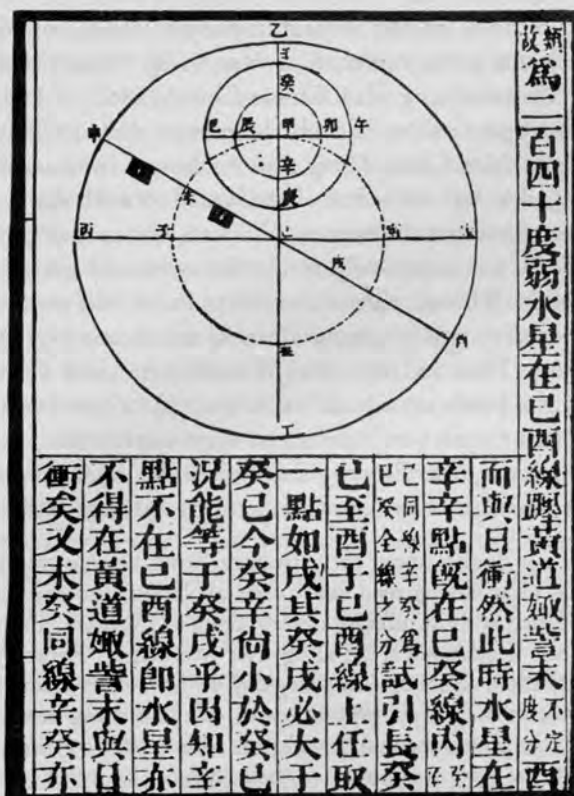 乙
壬
癸
巳 辰 甲 卯 午
辛
庚
丙
丁
爲二百四十度弱水星在巳酉線躔黃道娵訾末不定度分酉
而與日衝然此時水星在
辛辛點旣在巳癸線內
巳同線辛癸爲巳癸全線之一分試引長癸
巳至酉于巳酉線上任取
一點如戌其癸戌必大于
癸巳今癸辛尙小於癸巳
況能等于癸戌乎因知辛
點不在巳酉線卽水星亦
不得在黃道娵訾末與日
衝矣又未癸同線辛癸亦